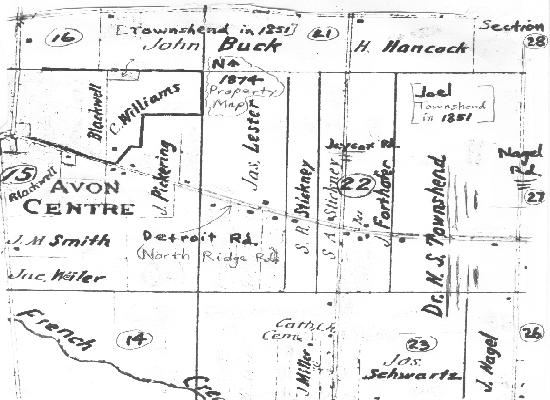 [Townshend in 1851]
16
John Buck
21
H. Hancock
Section
28
N↑
1874
Property
Map
Blackwell
C. Williams
Joel
Townshend
in 1851
Jas. Lester
Jaycox Rd.
Nagel
Rd
15
Blackwell
AVON
CENTRE
J. Pickering
S. H. Stickney
S. A. Stickney
22
J. Forthofer
Dr. N. S. Townshend
27
J. M Smith
Detroit Rd.
(North Ridge Rd)
Jac. Weiler
French
Creek
14
Cath. Ch.
Cem.
J Miller
23
Jos.
Schwartz
J. Nagel
26